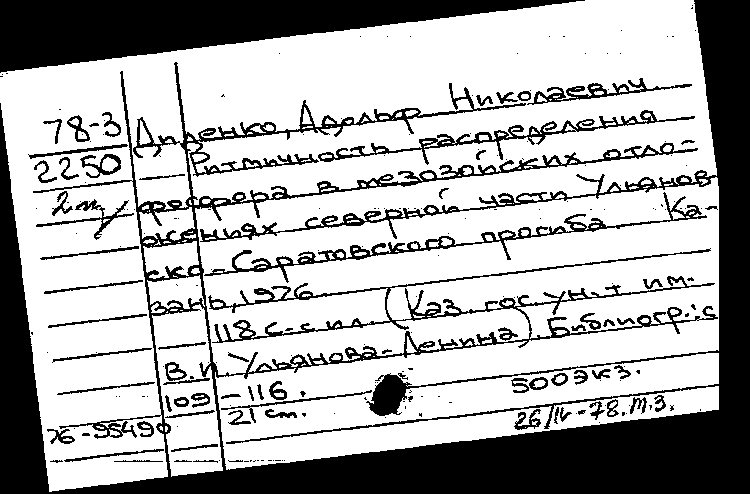 78-3 Диденко, Адольф Николаевич.
2250 Ритмичность распределения
2 т фосфора в мезозойских отло=
жениях северной части Ульянов-
ско-Саратовского прогиба. Ка-
зань, 1976.
118 с. с ил. (Каз. гос. ун-т им.
В.И. Ульянова-Ленина). Библиогр.: с
109-116. 500 экз.
76-95490 21 см. 26/IV-78. М.З.